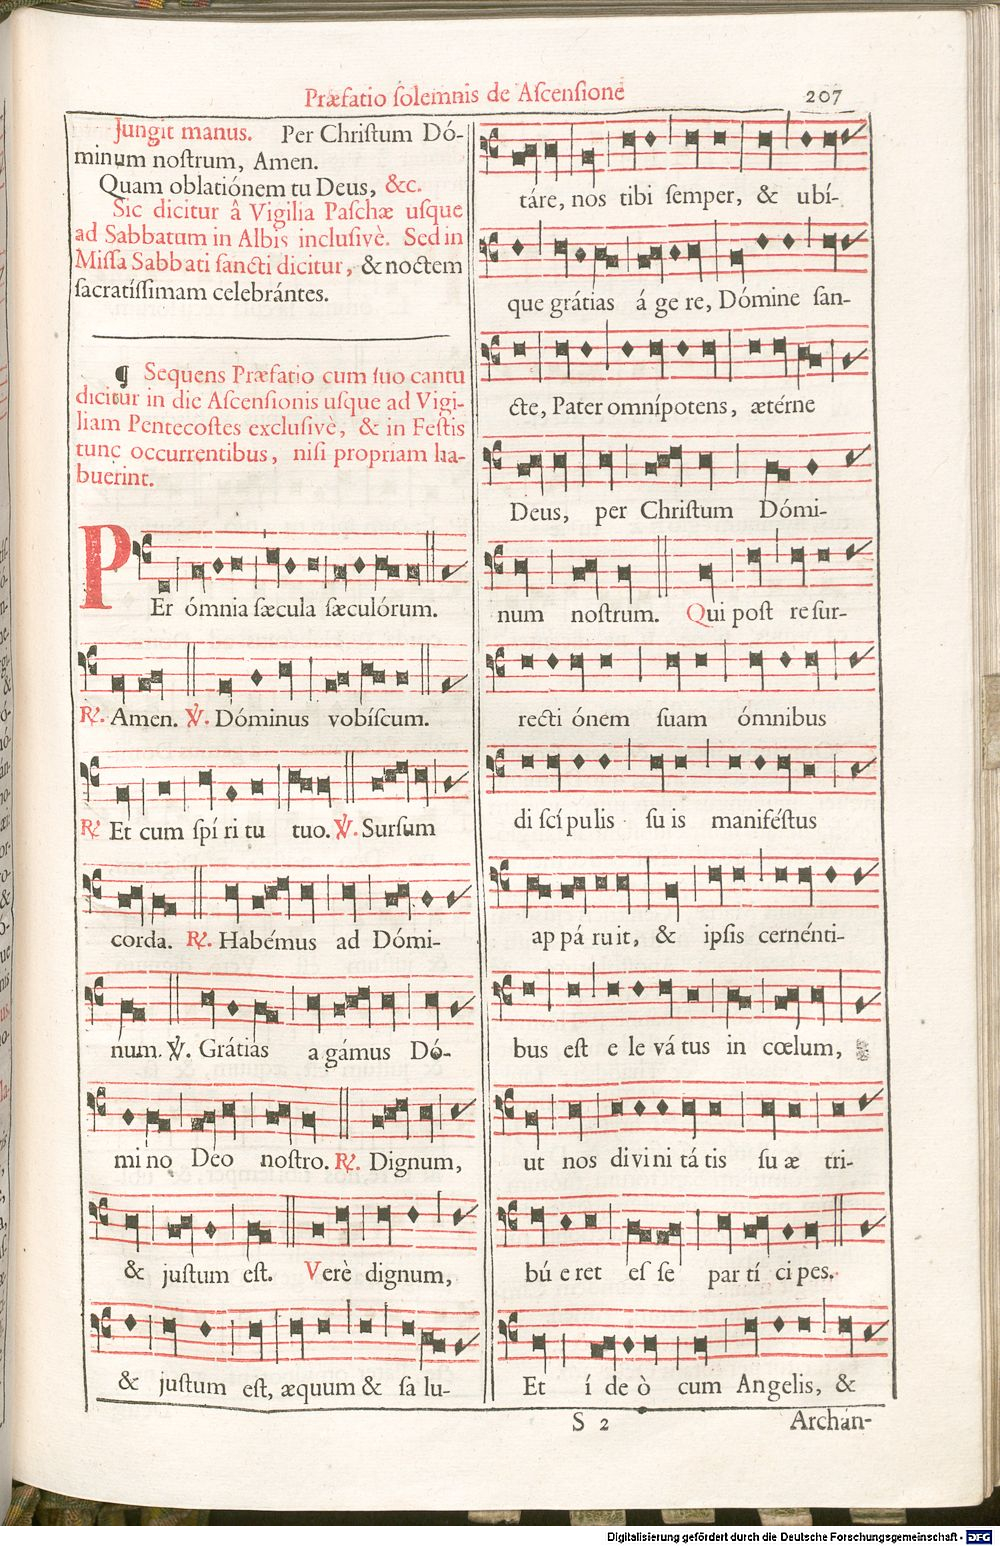 Præfatio ſolemnis de Aſcenſione 207
Jungit manus. Per Chriſtum Dó-
minum noſtrum, Amen.
Quam oblatiónem tu Deus, &c.
Sic dicitur â Vigilia Paſchæ uſque
ad Sabbatum in Albis incluſivè. Sed in
Miſſa Sabbati ſancti dicitur, & noctem
ſacratíſſimam celebrántes.
¶ Sequens Præfatio cum ſuo cantu
dicitur in die Aſcenſionis uſque ad Vigi-
liam Pentecoſtes excluſivè, & in Feſtis
tunc occurrentibus, niſi propriam ha-
buerint.
PEr ómnia ſæcula ſæculórum.
℟. Amen. ℣. Dóminus vobíſcum.
℟ Et cum ſpí ri tu tuo. ℣. Surſum
corda. ℟. Habémus ad Dómi-
num. ℣. Grátias a gámus Dó-
mi no Deo noſtro. ℟. Dignum,
& juſtum eſt. Verè dignum,
& juſtum eſt, æquum & ſa lu-
táre, nos tibi ſemper, & ubí-
que grátias á ge re, Dómine ſan-
cte, Pater omnípotens, ætérne
Deus, per Chriſtum Dómi-
num noſtrum. Qui poſt re ſur-
recti ónem ſuam ómnibus
di ſcí pu lis ſu is maniféſtus
ap pá ru it, & ipſis cernénti-
bus eſt e le vá tus in cœlum,
ut nos di vi ni tá tis ſu æ tri-
bú e ret eſ ſe par tí ci pes.
Et í de ò cum Angelis, &
S 2 Archán-
Digitalisierung gefördert durch die Deutsche Forschungsgemeinschaft - DFG